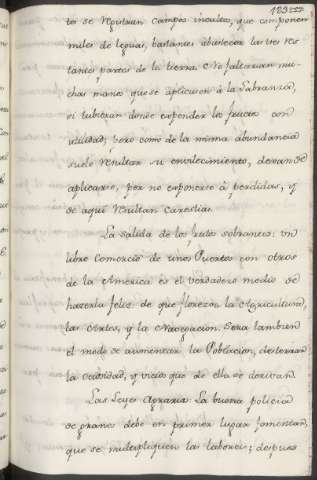 123
tes se registran campos incultos, que componen
miles de leguas, bastantes abastecer las tres res
tantes partes de la tierra. No faltarian mu-
chas manos que se aplicasen à la Labranza,
si tubieran donde expender los frutos con
utilidad; pero como de la misma abundancia
suele resultar su envilecimiento, dexan de
aplicarse, por no exponerse à perdidas, y
de aqui resultan carestias.
La salida de los frutos sobrantes: un
libre Comercio de unos Puertos con otros
de la America es el verdadero medio de
hazerla feliz, de que florezca la Agricultura,
las Artes, y la Navegacion. Sera tambien
el modo de aumentar la Poblacion, desterrar
la ociosidad, y vicios que de ella se derivan.
Las Leyes Agrarias: La buena policia
de granos debe en primer lugar fomentar,
que se multipliquen las labores; despues